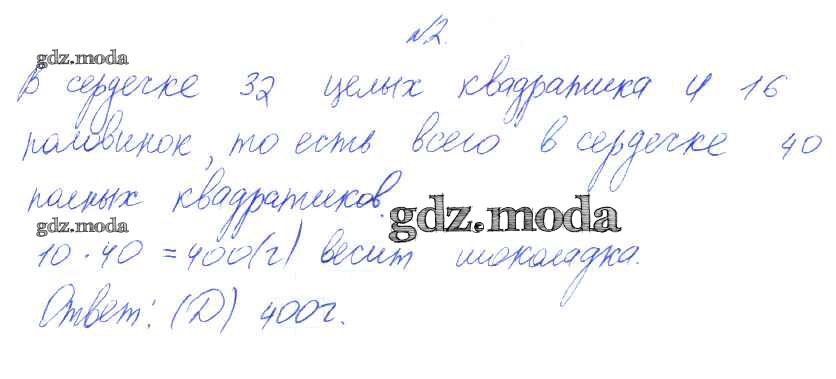 №2.
gdz.moda
В сердечке 32 целых квадратика и 16
половинок, то есть всего в сердечке 40
полных квадратиков.
gdz.moda
gdz.moda
10 · 40 = 400(г) весит шоколадка.
Ответ: (D) 400г.